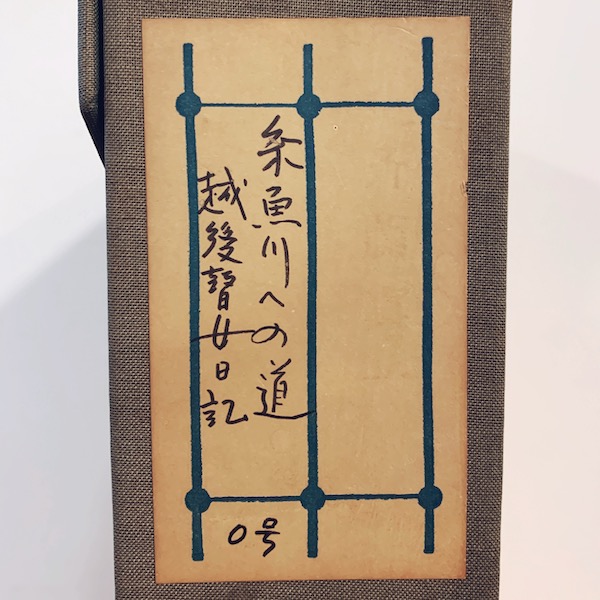 糸魚川への道
越後瞽女日記
0号